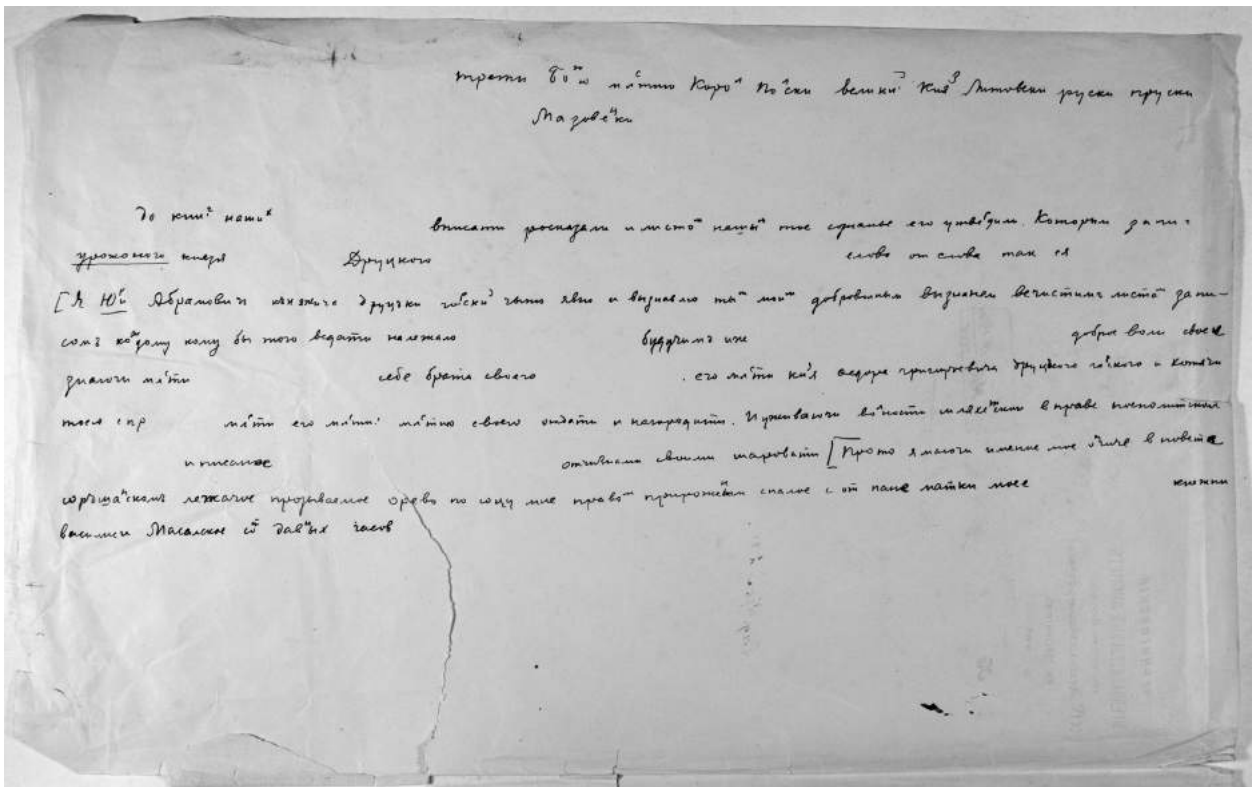 трети Бо͠ю м͠лтию Коро͠л По͠лски велики͠ Кня͠з Литовски руски пруски
Мазове͠цки
до книг наших вписати росказали и листом нашым тое зознанье его утвердили. Которыи запис
урожоного князя Друцкого слово от слова так ся
[Я Юреи Абрамович княже Друцки чиню явно и вызнаваю тым моим добровольным вызнанем вечистым листом запи-
сомъ кождому кому бы того ведати належало будучымъ иже доброе воли своее
знаючи милти себе брата своего его м͠лти князя Федора григоревича друцкого и хотячи
м͠лти его м͠лти м͠лтю своего оддати и нагородити. И уживаючи волности шляхетскои в праве посполитомъ
и писаное отчизнами своими шафовати [Прото я маючи имение мое отчизное в повете
лежачое прозываемое по отцу мне правом прирожоным спалое и от пани матки моее княжни
василиси Масалское от давных часов